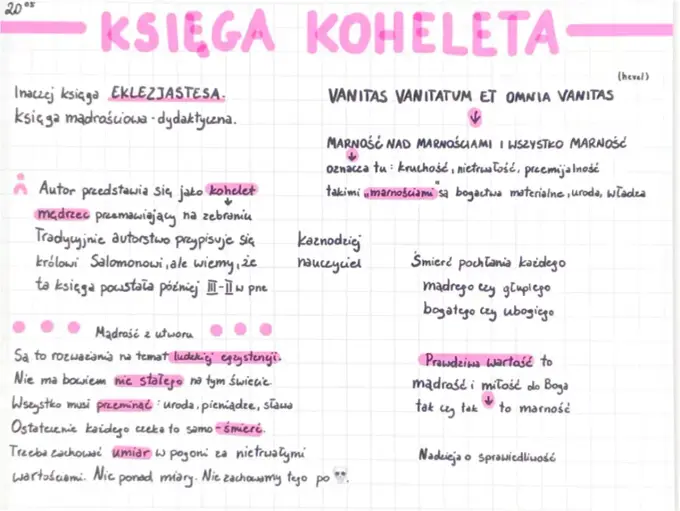 20.05
KSIĘGA KOHELETA
Inaczej księga EKLEZJASTESA.
księga mądrościowa - dydaktyczna.
Autor przedstawia się jako kohelet
mędrzec przemawiający na zebraniu
Tradycyjnie autorstwo przypisuje się
królowi Salomonowi, ale wiemy, że
ta księga powstała później III-II w pne
kaznodziej
nauczyciel
Mądrość z utworu
Są to rozważania na temat ludzkiej egzystencji.
Nie ma bowiem nic stałego na tym świecie.
Wszystko musi przeminąć: uroda, pieniądze, sława
Ostatecznie każdego czeka to samo - śmierć.
Trzeba zachować umiar w pogoni za nietrwałymi
wartościami. Nic ponad miarę. Nie zachowamy tego po
(hevel)
VANITAS VANITATUM ET OMNIA VANITAS
MARNOŚĆ NAD MARNOŚCIAMI I WSZYSTKO MARNOŚĆ
oznacza tu: kruchość, nietrwałość, przemijalność
takimi „marnościami" są bogactwa materialne, uroda, władza
Śmierć pochłania każdego
mądrego czy głupiego
bogatego czy ubogiego
Prawdziwa wartość to
mądrość i miłość do Boga
tak czy tak to marność
Nadzieja o sprawiedliwość